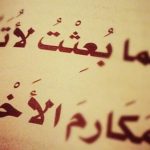 ما بُعِثْتُ لأُتَ
مَكَارِمَ الأَخْ